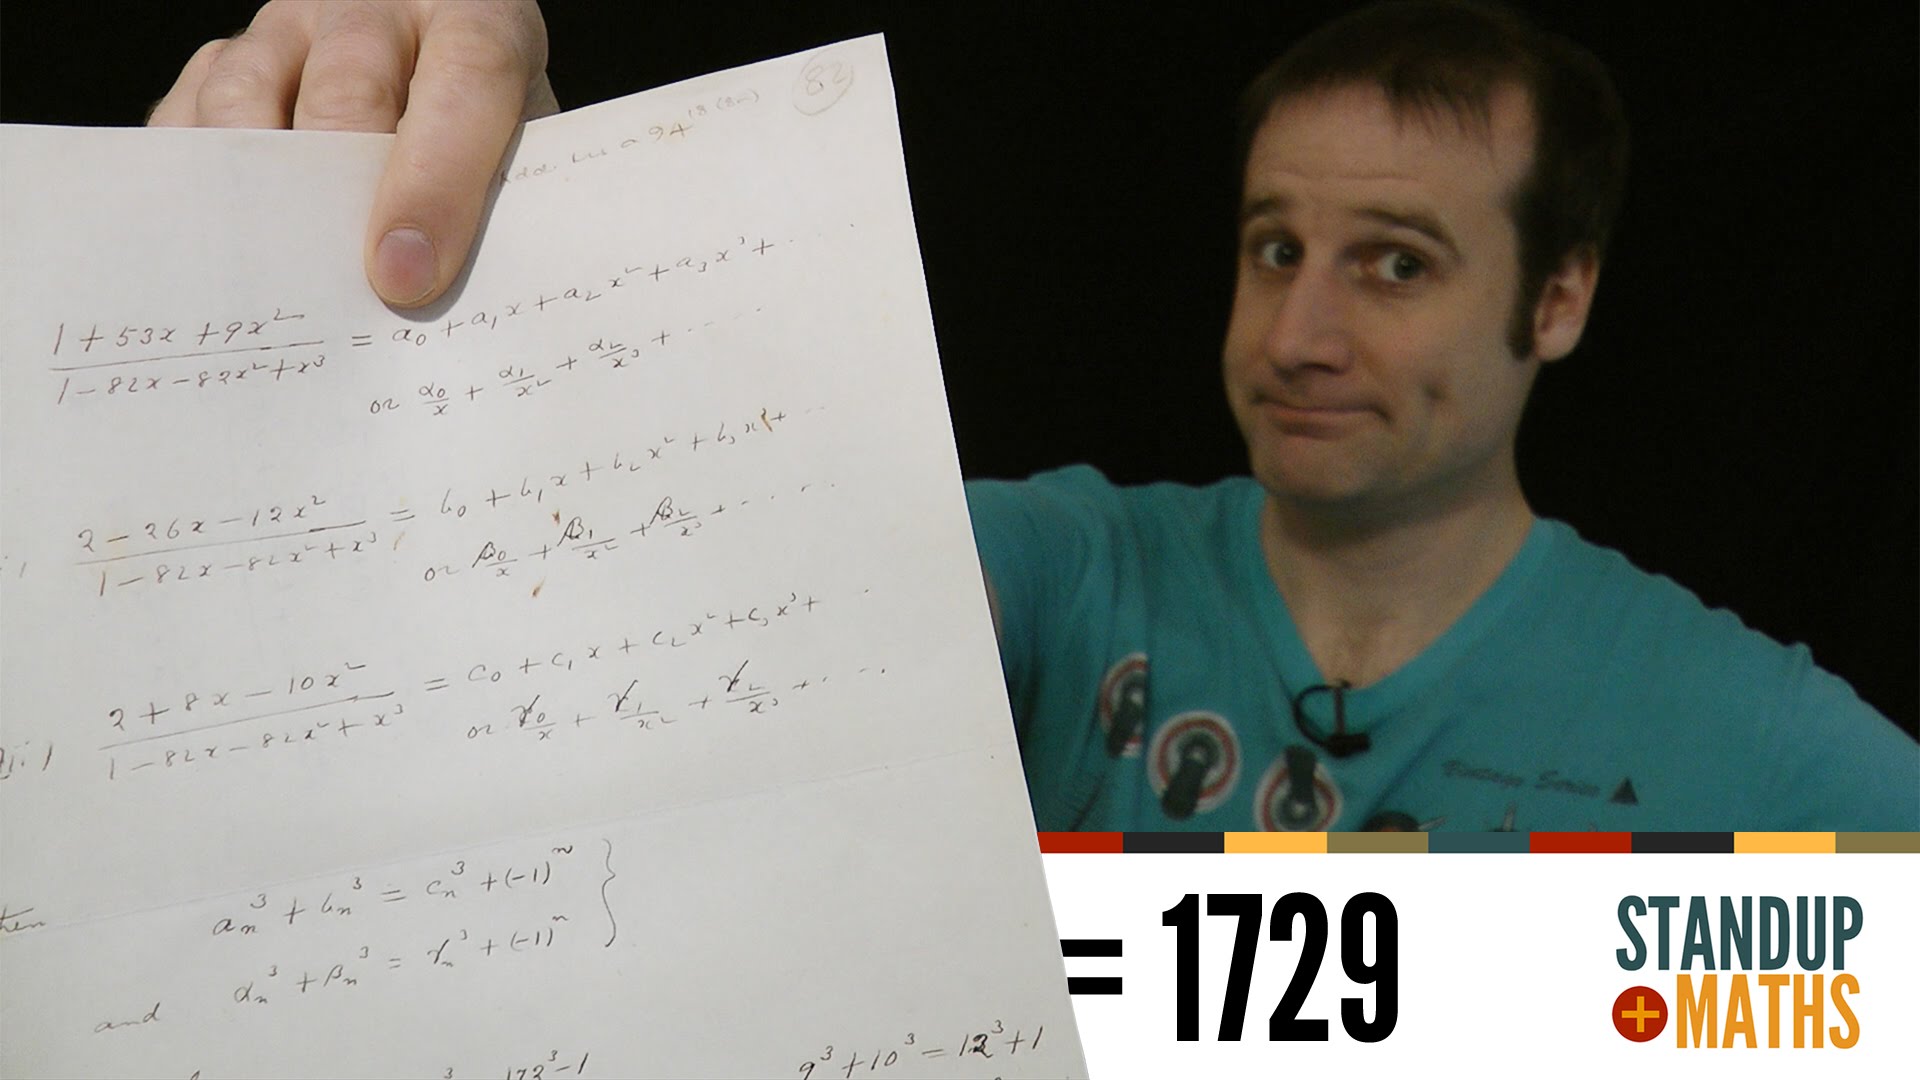 82
1 + 53x + 9x² / 1 - 82x - 82x² + x³ = a₀ + a₁x + a₂x² + a₃x³ + ....
or α₀/x + α₁/x² + α₂/x³ + ....
2 - 26x - 12x² / 1 - 82x - 82x² + x³ = b₀ + b₁x + b₂x² + b₃x³ + ..
or β₀/x + β₁/x² + β₂/x³ + ....
2 + 8x - 10x² / 1 - 82x - 82x² + x³ = c₀ + c₁x + c₂x² + c₃x³ + .
or γ₀/x + γ₁/x² + γ₂/x³ + ....
aₙ³ + bₙ³ = cₙ³ + (-1)ⁿ }
and αₙ³ + βₙ³ = γₙ³ + (-1)ⁿ
172³ - 1
9³ + 10³ = 12³ + 1
Vintage Series
= 1729
STANDUP
+MATHS